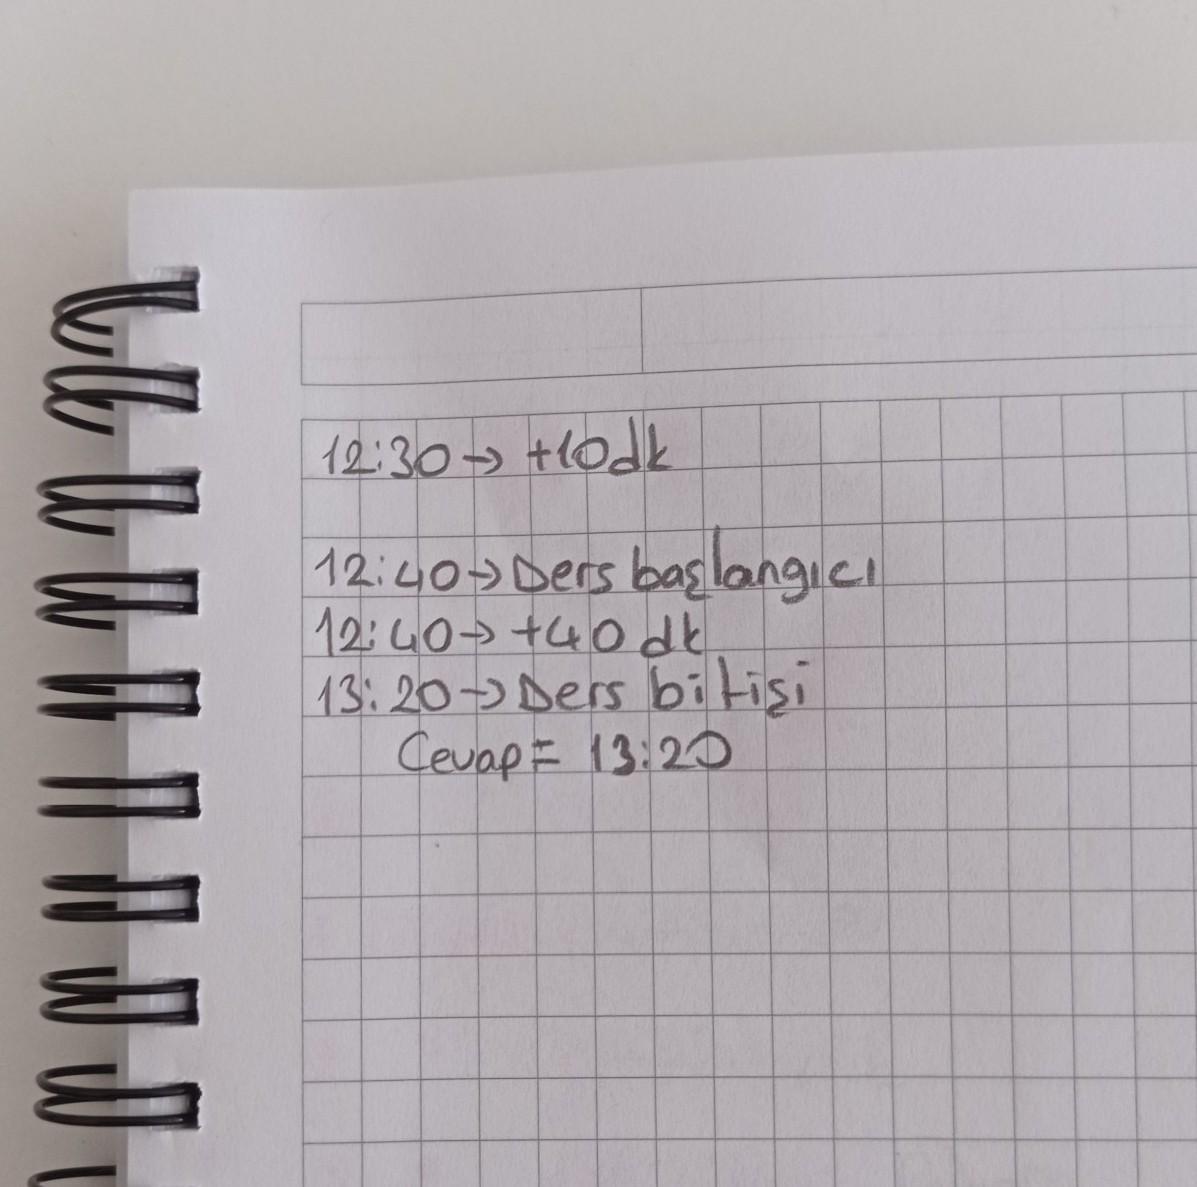 12:30→ +10dk
12:40→Ders başlangıcı
12:40→ +40 dk
13:20→Ders bitişi
Cevap= 13:20